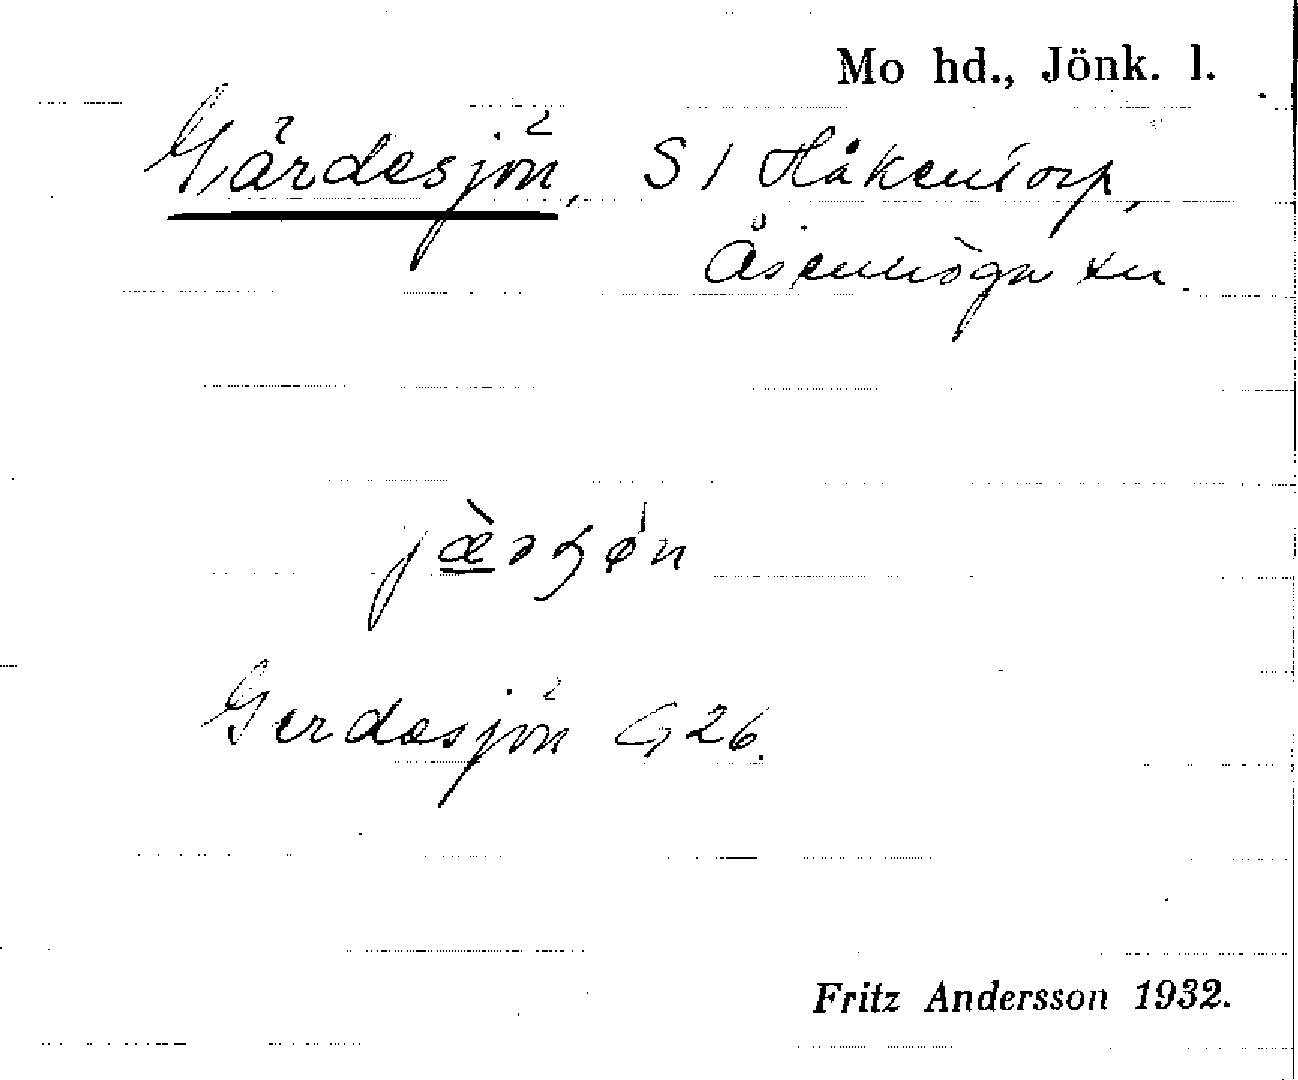 Mo hd., Jönk. l.
Gärdesjön, S / Håkentorp,
Åsenhöga sn.
Gerdesjön G 26.
Fritz Andersson 1932.